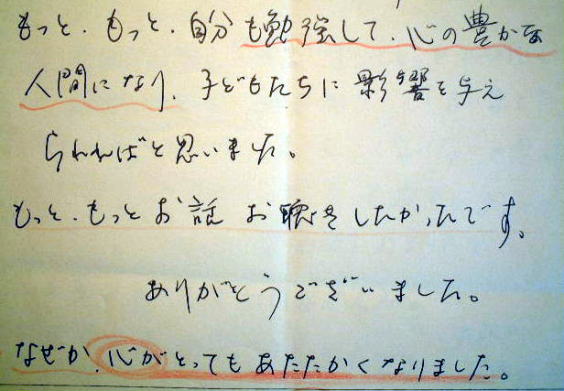 もっと、もっと、自分も勉強して、心の豊かな
人間になり、子どもたちに影響を与え
られればと思いました。
もっと、もっとお話お聴きしたかったです。
ありがとうございました。
なぜか、心がとってもあたたかくなりました。